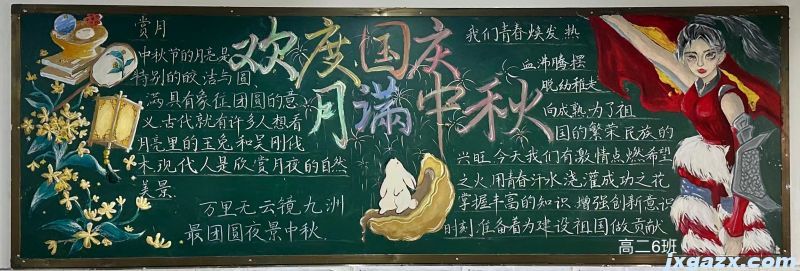 欢度国庆
月满中秋
赏月
中秋节的月亮是
特别的皎洁与圆
满具有象征团圆的意
义.古代就有许多人想看
月亮里的玉兔和吴刚伐
木.现代人是欣赏月夜的自然
美景.
万里无云镜九洲
最团圆夜景中秋.
我们青春焕发 热
血沸腾摆
脱幼稚走
向成熟.为了祖
国的繁荣民族的
兴旺今天我们有激情点燃希望
之火用青春汗水浇灌成功之花
掌握丰富的知识 增强创新意识
时刻准备着为建设祖国做贡献
高二6班
jxgazx.com